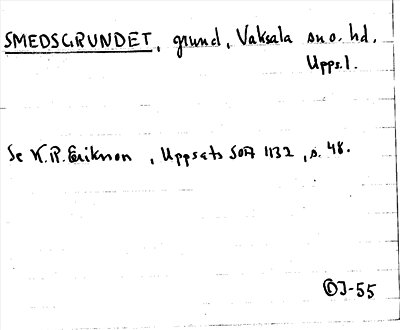 SMEDSGRUNDET, grund, Vaksala sn o. hd.
Upps. l.
Se K.R. Erikson, Uppsats SOA 1132, s. 48.
DJ-55